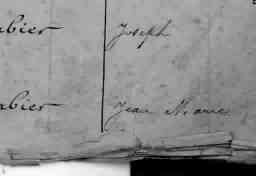 bier Joseph
bier Jean Marie